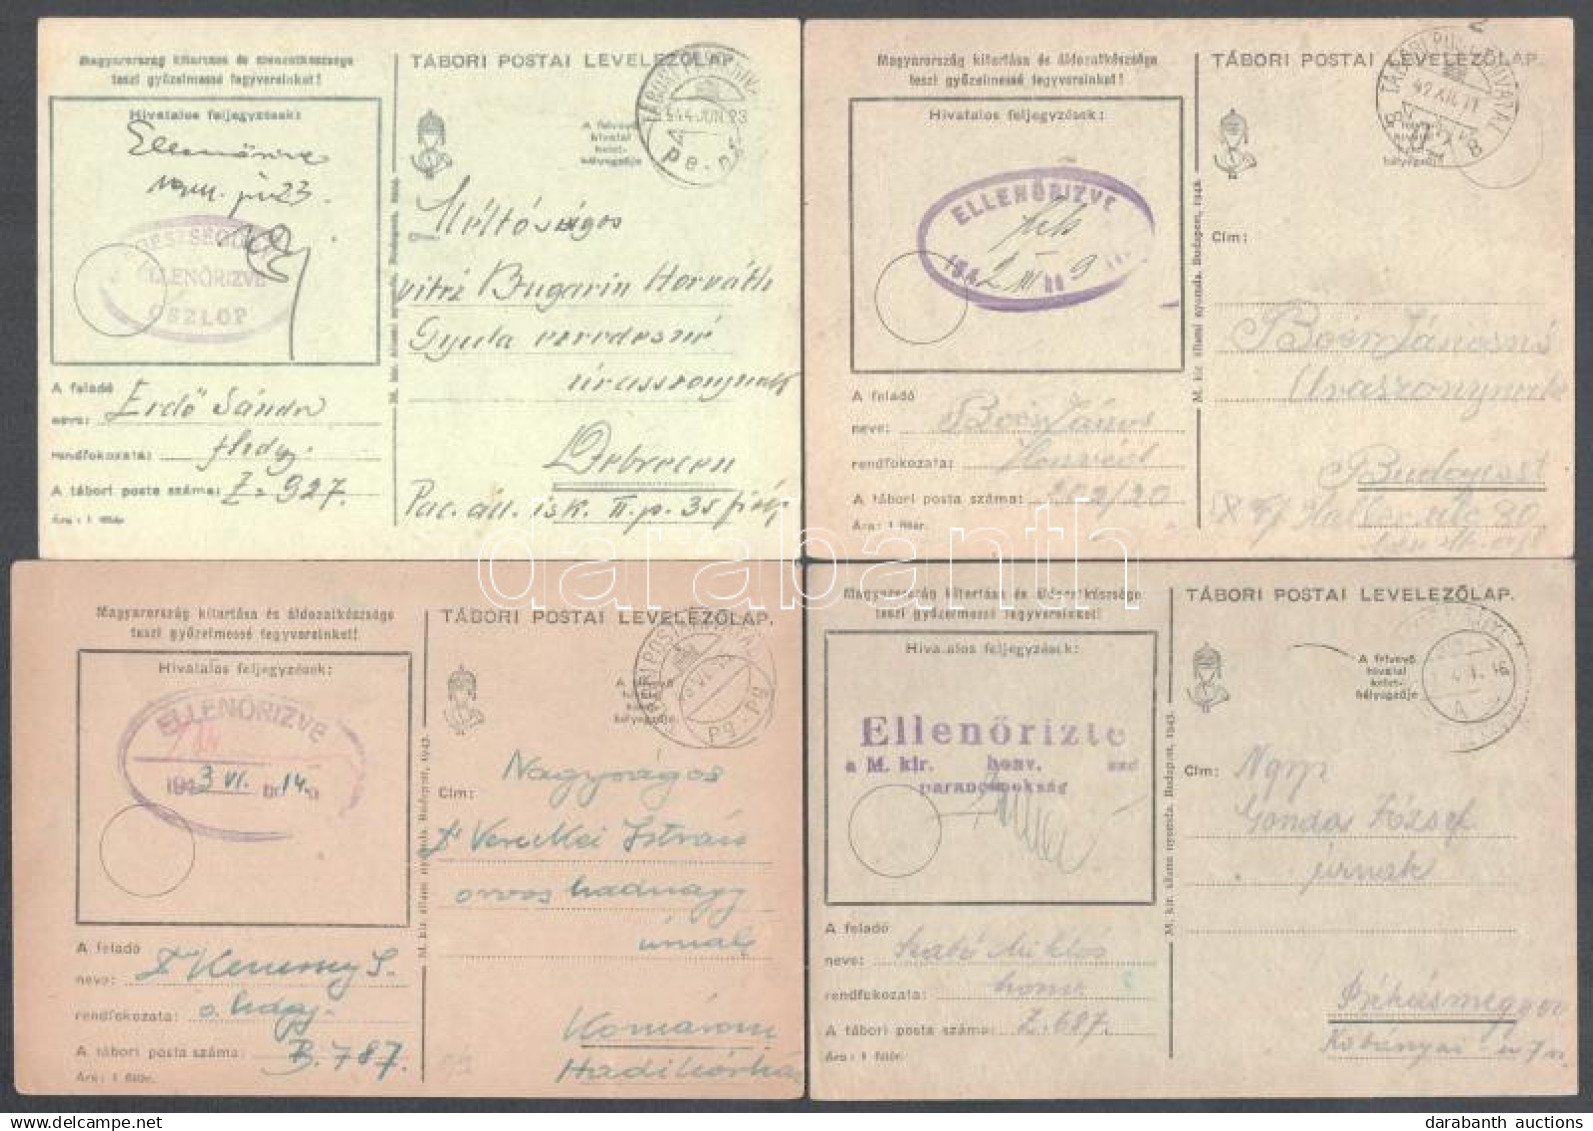 Magyarország kitartása és áldozatkészsége
teszi győzelmessé fegyvereinket!
TÁBORI POSTAI LEVELEZŐLAP.
Hivatalos feljegyzések:
Ellenőrizve
23
ELLENŐRIZVE
OSZLOP
A felvevő
hivatal
kelet-
bélyegzője
944 JUN 23
Méltóságos
vitéz Bugarin Horváth
Gyula ezredesné
úrasszonynak
Debrecen
Pac. áll. isk. II. p. 35
M. kir. állami nyomda, Budapest,
A feladó
neve: Erdő Sándor
rendfokozata: fhdgy.
A tábori posta száma: Z. 927.
Ára: 1 fillér
Magyarország kitartása és áldozatkészsége
teszi győzelmessé fegyvereinket!
TÁBORI POSTAI LEVELEZŐLAP.
Hivatalos feljegyzések:
ELLENŐRIZVE
1942 III 9
42 XII. 11
bélyegzője
Cím:
Boén Jánosné
Úraszonynak
Budapest
Haller utc 90
M. kir. állami nyomda, Budapest, 1942.
A feladó
neve: Boén János
rendfokozata: Honvéd
A tábori posta száma: 202/20
Ára: 1 fillér.
darabanth
Magyarország kitartása és áldozatkészsége
teszi győzelmessé fegyvereinket!
TÁBORI POSTAI LEVELEZŐLAP.
Hivatalos feljegyzések:
ELLENŐRIZVE
1943 VI. 14.
A felvevő
hivatal
kelet-
bélyegzője
Cím:
Nagyságos
Dr Vereckei István
orvos hadnagy
úrnak
Komárom
Hadikórház
M. kir. állami nyomda, Budapest, 1943.
A feladó
neve: Dr Kemeney S.
rendfokozata: o. hdgy.
A tábori posta száma: B. 787.
Ára: 1 fillér.
Magyarország kitartása és áldozatkészsége
teszi győzelmessé fegyvereinket!
TÁBORI POSTAI LEVELEZŐLAP.
Hivatalos feljegyzések:
Ellenőrizte
a M. kir. honv.
parancsnokság
A felvevő
hivatal
kelet-
bélyegzője
Cím:
Ngys
Gondos József
úrnak
Békásmegyer
Kőbányai u 7
M. kir. állami nyomda, Budapest, 1943.
A feladó
neve: Szabó Miklós
rendfokozata: honv.
A tábori posta száma: Z. 687.
Ára: 1 fillér.
darabanth auctions